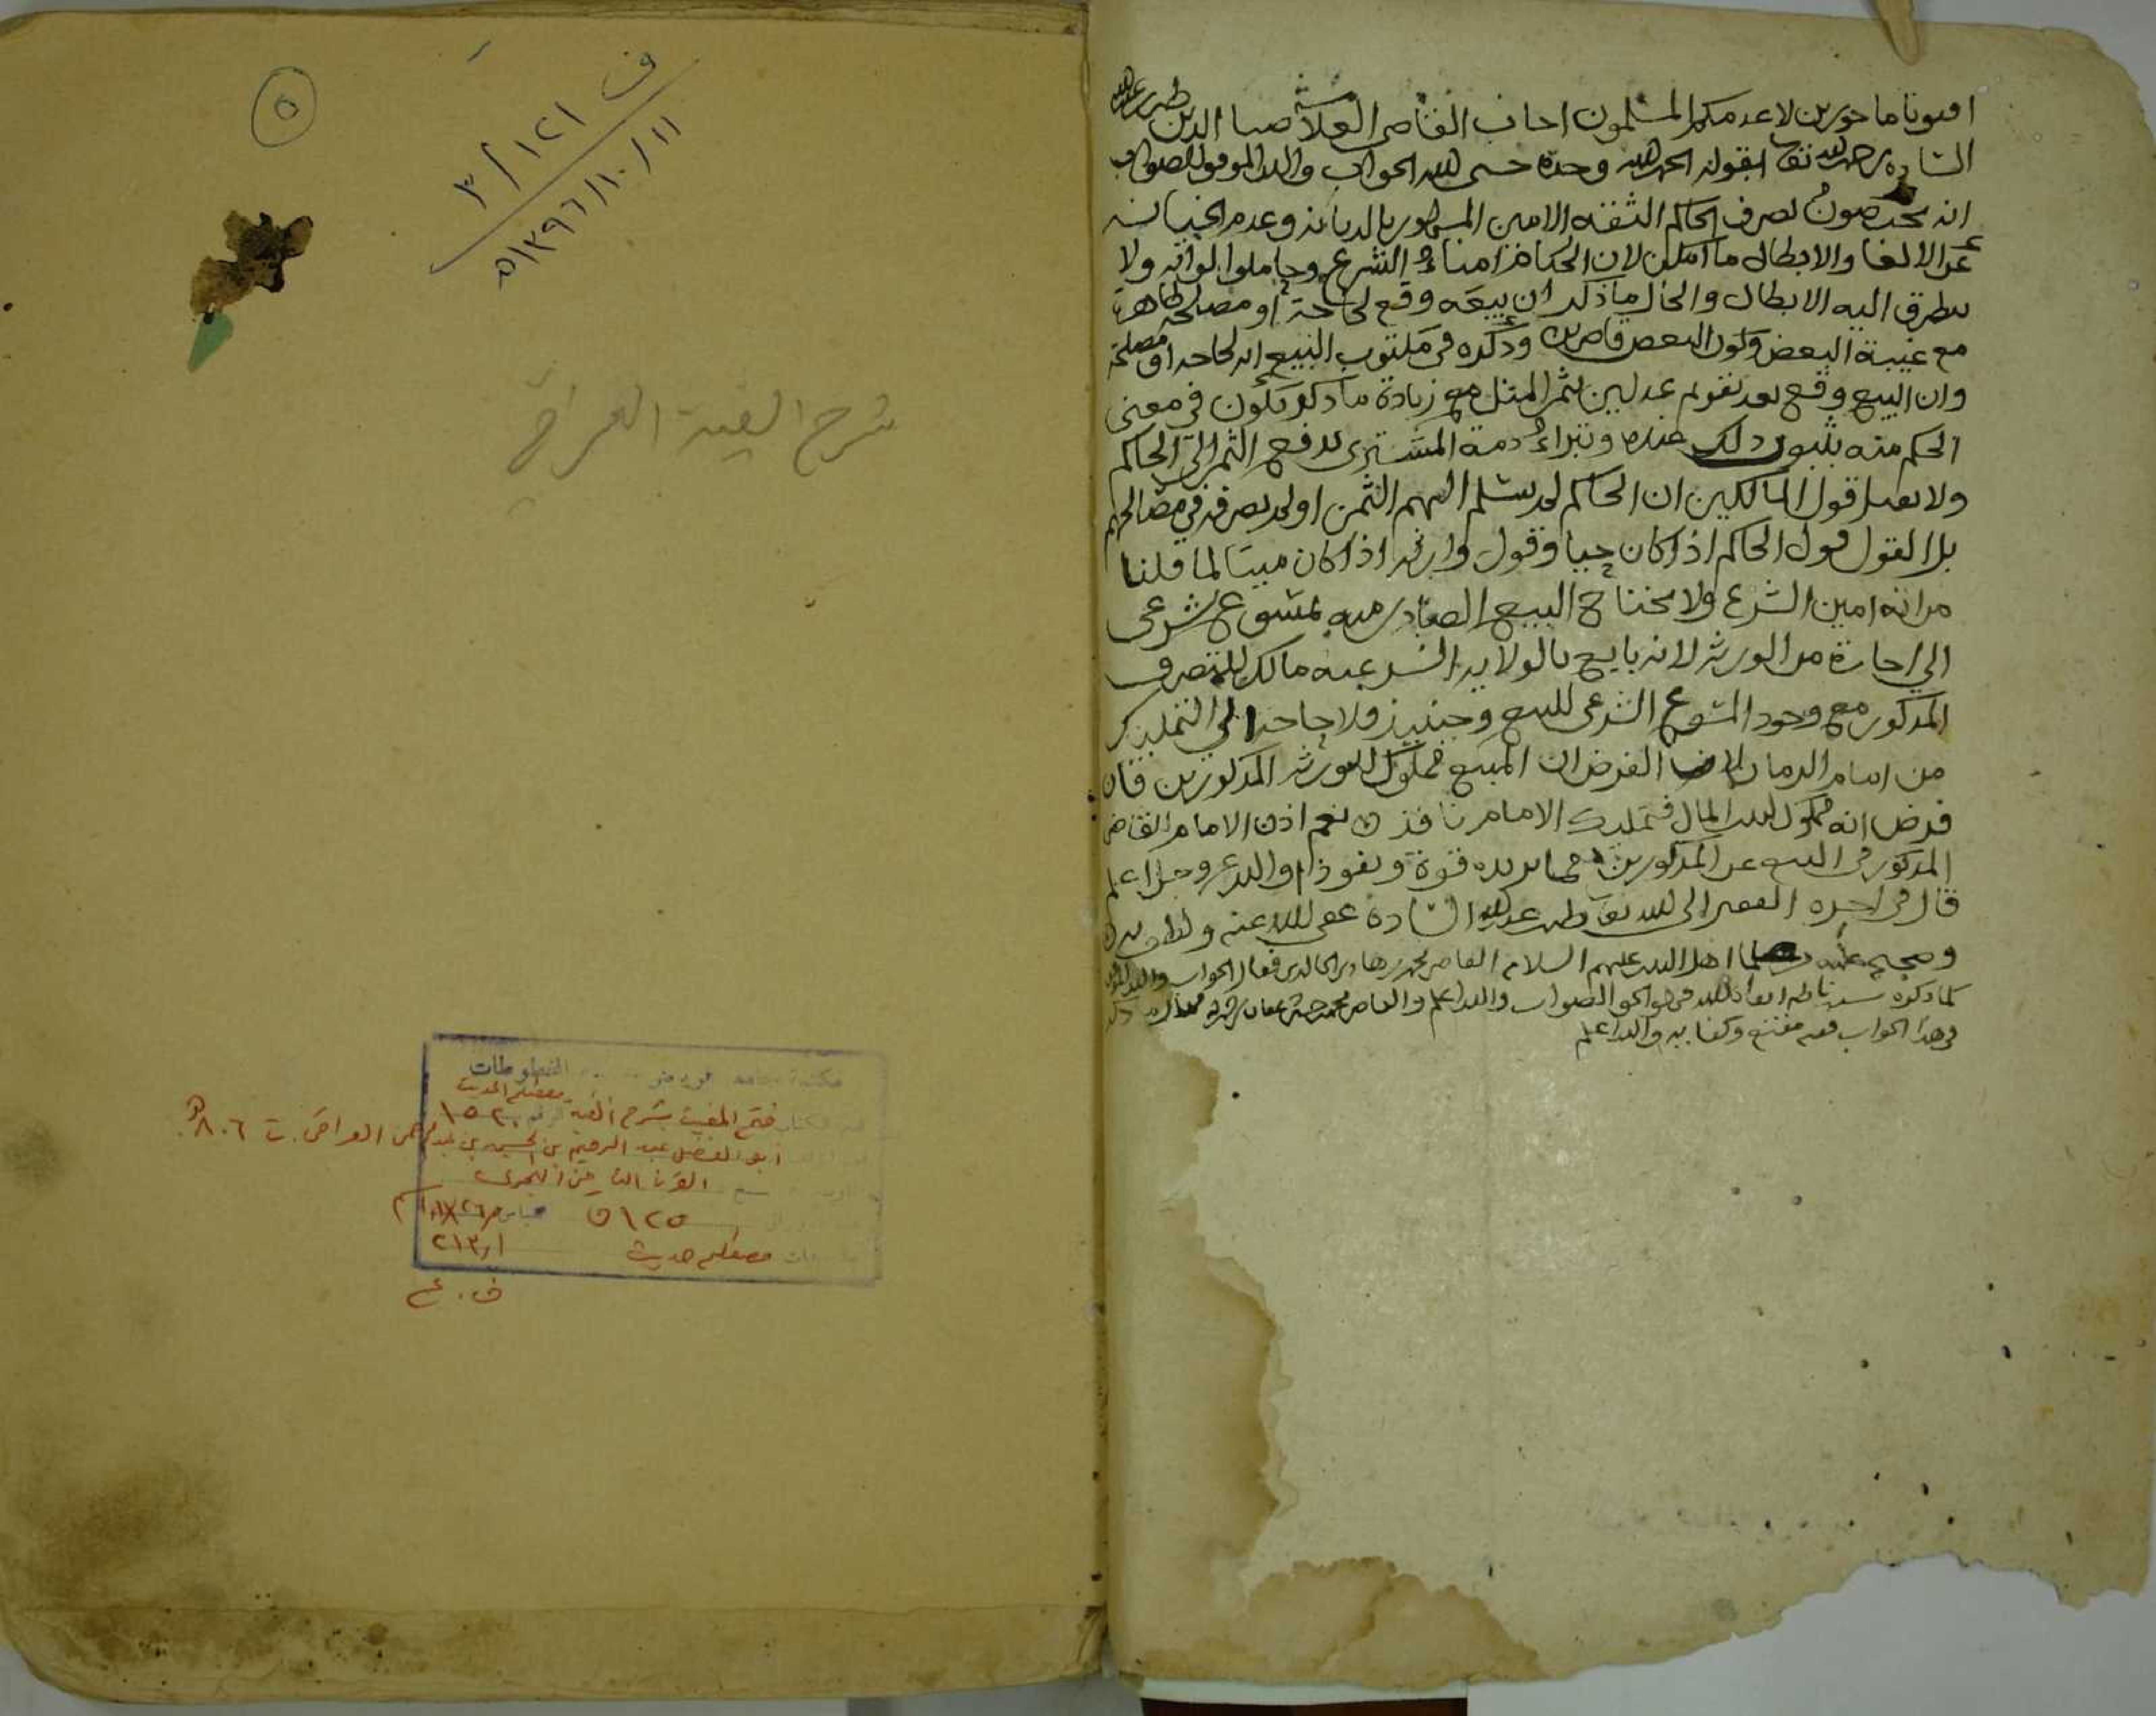 افتونا ماجورين لا عدمكم المسلمون اجاب القاضي العلامة ضيا الدين طه بن عبدالله
السادة رحمه الله تعالى بقوله الحمد لله وحده حسبي الله الجواب والله الموفق للصواب
انه يجب صون تصرف الحاكم الثقة الامين المشهور بالديانة وعدم الخيانة
عن الالغا والابطال ما امكن لان الحكام امناء الشرع وحاملوا لوائه ولا
يتطرق اليه الابطال والحال ما ذكر ان بيعه وقع لحاجة او مصلحة ظاهرة
مع غيبة البعض وكون البعض قاصرين وذكره في مكتوب البيع انه لحاجة او مصلحة
وان البيع وقع بعد تقويم عدلين بثمن المثل مع زيادة ما ذكر يكون في معنى
الحكم منه بثبوت ذلك عنده وتبراء ذمة المشتري بدفع الثمن الى الحاكم
ولا يقبل قول المالكين ان الحاكم لم يسلم اليهم الثمن او لم يصرفه في مصالحهم
بل القول قول الحاكم اذا كان حيا وقول وارثه اذا كان ميتا لما قلنا
من انه امين الشرع ولا يحتاج البيع الصادر منه لمسوغ شرعي
الى اجازة من الورثة لانه بايع بالولاية الشرعية مالك للتصرف
المذكور مع وجود المسوغ الشرعي للبيع وحينيذ فلا حاجة الى التمليك
من امام الزمان لان الفرض ان المبيع مملوك للورثة المذكورين فان
فرض انه مملوك لبيت المال فتمليك الامام نافذ نعم اذن الامام القاضي
المذكور في البيع عن المذكورين مما يزيده قوة ونفوذا والله عز وجل اعلم
قال في اخره الفقير الى الله تعالى طه بن عبدالله السادة عفى الله عنه ولطف به
وصحح عليه اهل البيت عليهم السلام القاضي محمد بن هادي الخالدي فقال الجواب والله الموفق
كما ذكره سيدنا طه ابقاه الله هو الحق الصواب والله اعلم والقاضي محمد حسن
وهذا الجواب فيه مقنع وكفاية والله اعلم
٥
ف ١٢١/٣
١٣٩٦/١٠/١١ه
شرح الفية العراقي
مكتبة جامعة المخطوطات
فتح المغيث بشرح الفية مصطلح الحديث ١٥٢٠
ابو الفضل عبد الرحيم بن الحسين بن عبد الرحمن العراقي. ت ٨٠٦ه
القرن الثامن الهجري
١٢٥ ق
مصطلح حديث ٢١٣,١
ف. ع